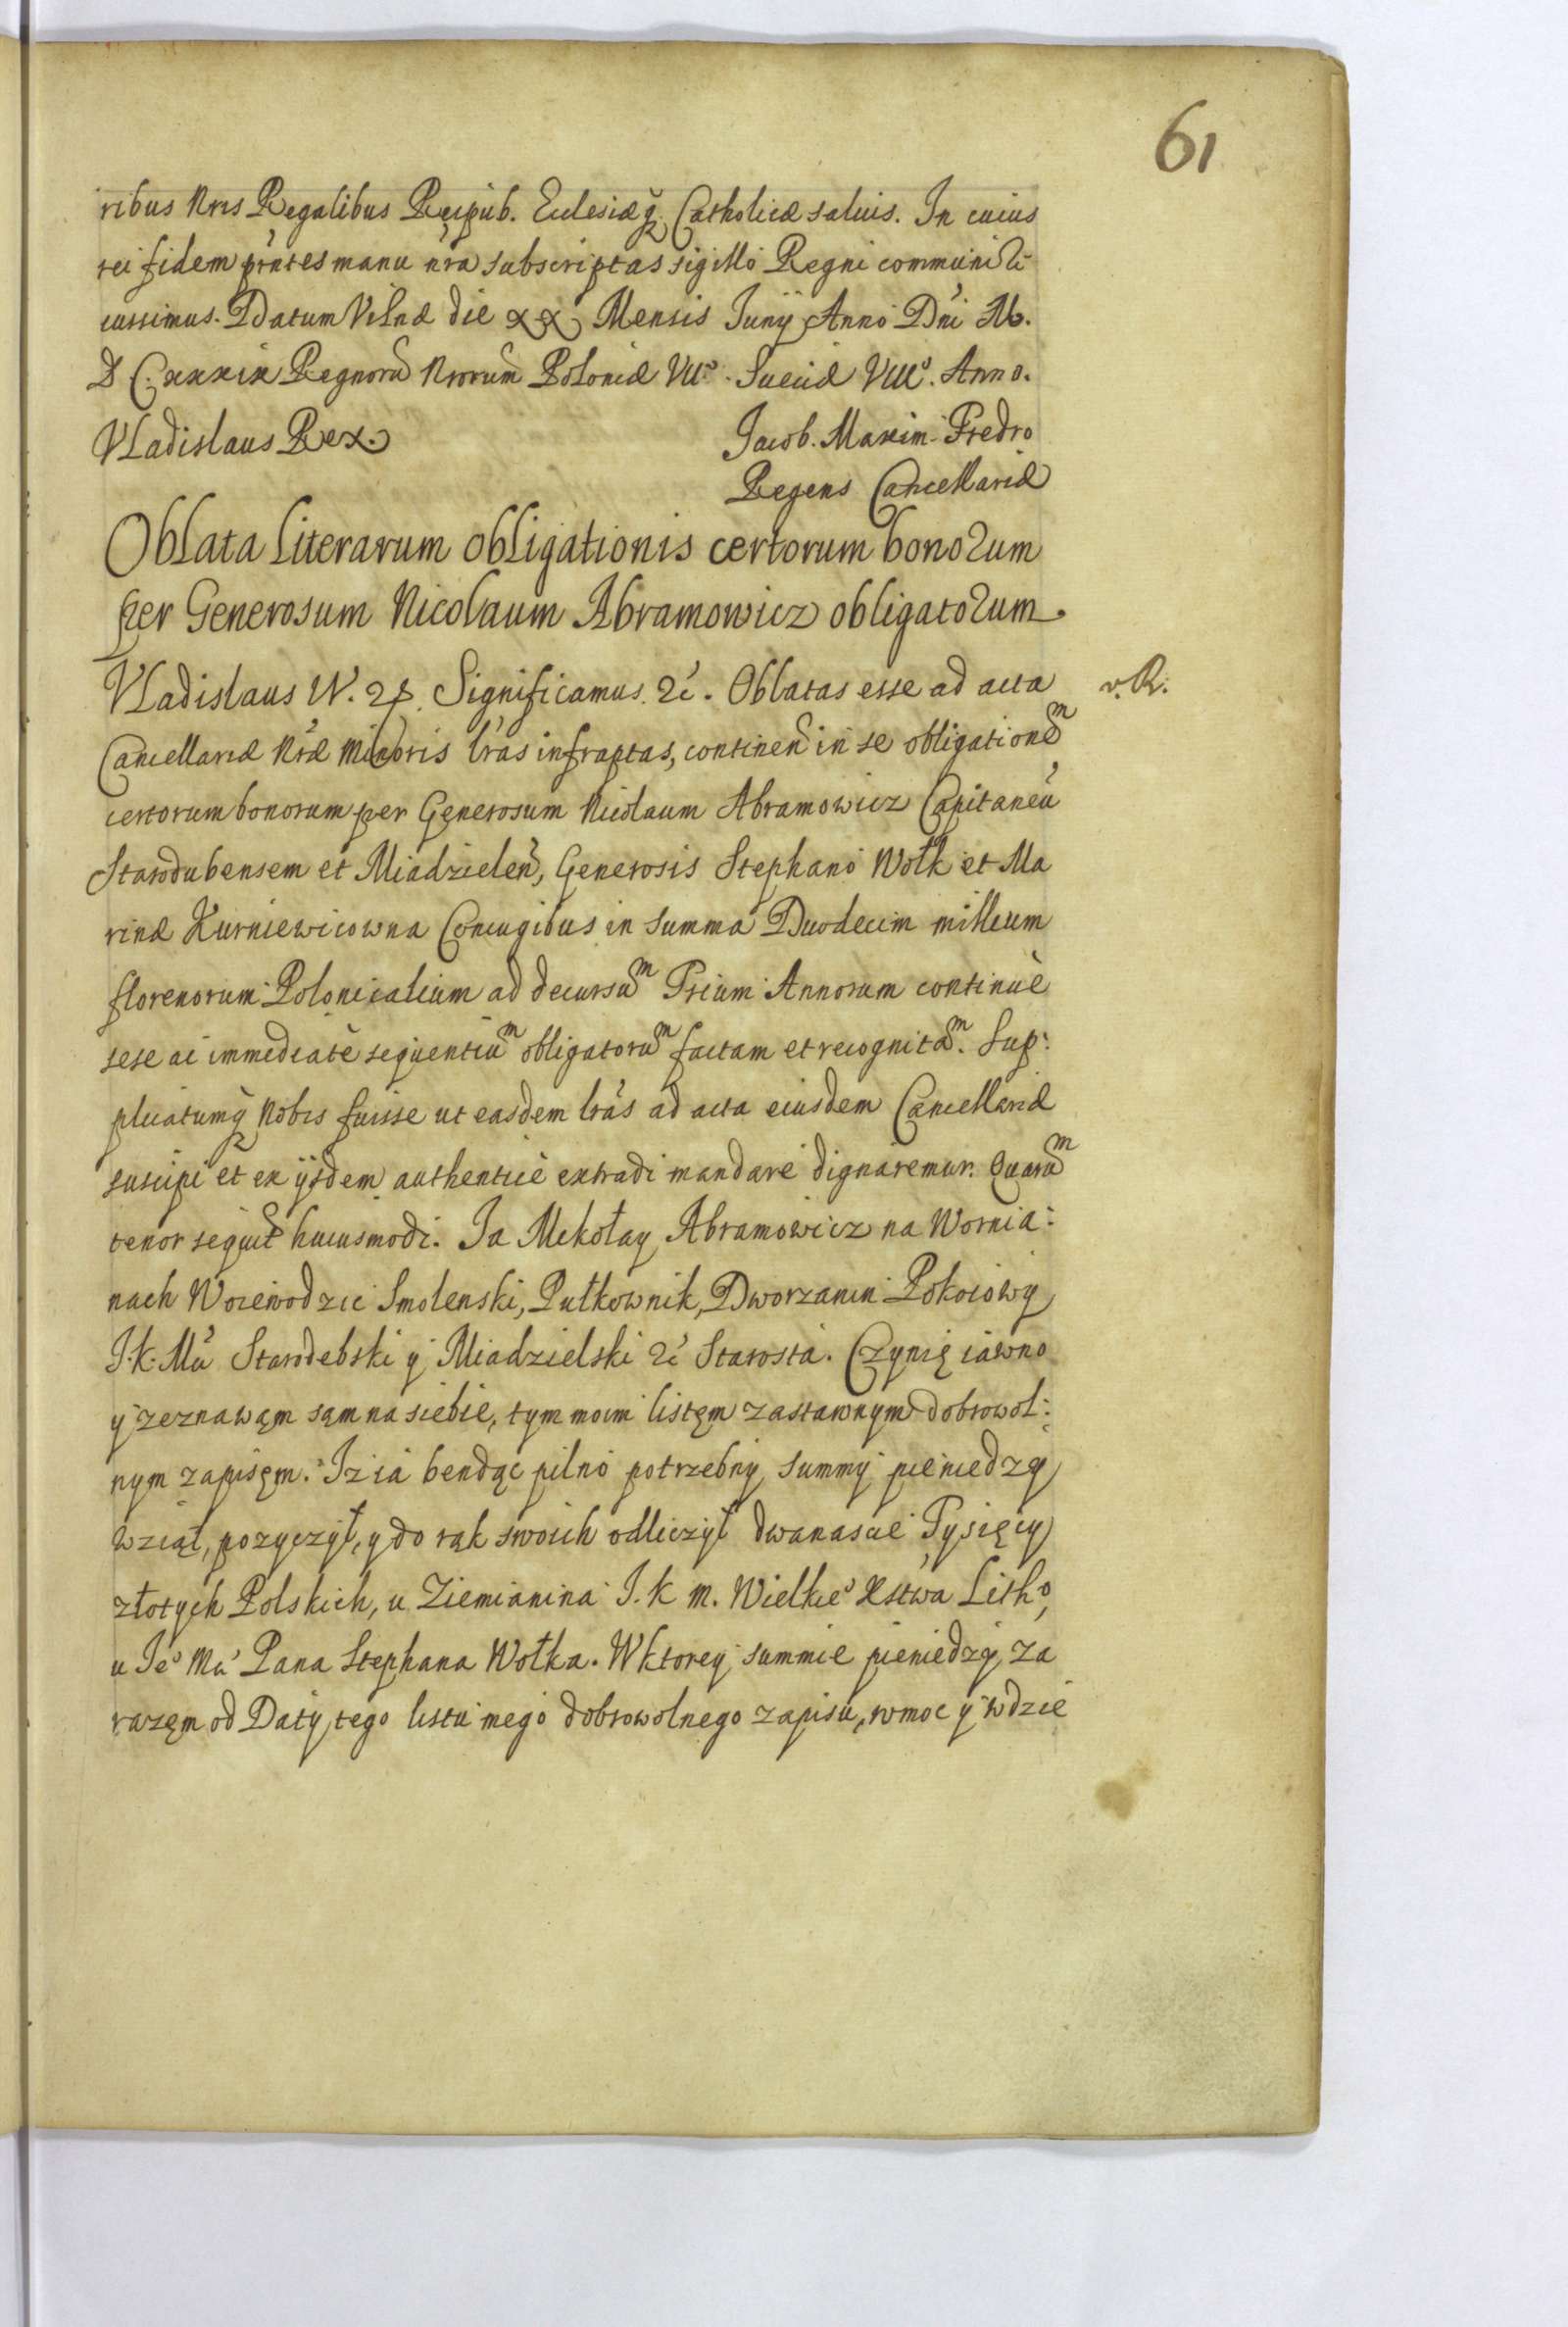 61
ribus Nris Regalibus Reipub. Eclesiæq́ Catholicæ saluis. In cuius
rei fidem pr̃ntes manu n̄ra subscriptas sigillo Regni communi ri
cussimus. Ddatum Vilnæ die XX Mensis Iunij Anno Dn̄i M.
D C. xxxix Regnorũ Nrorum̃ Poloniæ VIIº. Sueciæ VIIIº. Anno.
Vladislaus Rex.
Jacob. Maxim. Fredro
Regens Cancellariæ
Oblata literarum obligationis certorum bonorum
per Generosum Nicolaum Abramowicz obligatorum.
Vladislaus IV. Significamus 2ć. Oblatas esse ad acta
v. R.
Cancellariæ Nræ Minoris lr̃as infraptas, continen̄ in se obligationẽm
certorum bonorum per Generosum Nicolaum Abramowicz Capitaneũ
Starodubensem et Miadzielen̄, Generosis Stephano Wołk et Ma
rinæ Kurniewicowna Coniugibus in summa Duodecim millium
florenorum Polonicalium ad decursũm Trium Annorum continuè
sese ac immediatè sequentiũm obligatorũm factam et recognitãm. Sup:
plicatumq́ Nobis fuisse ut easdem lr̃as ad acta eiusdem Cancellariæ
suscipi et ex ijsdem authenticè extradi mandare dignaremur. Quarũm
tenor sequit̃ huiusmodi. Ja Mikołay Abramowicz na Wornia:
nach Woiewodzic Smolenski, Pułkownik, Dworzanin Pokoiowy
J. K. Mći Starodebski y Miadzielski 2ć Starosta. Czynię iawno
y zeznawąm sąm na siebie, tym moim listęm zastawnym dobrowol:
nym zapisęm. Iz ia bendąc pilno potrzebny summy pieniedzy
wziął, pozyczył, y do rąk swoich odliczył dwanascie Tysięcy
złotych Polskich, u Ziemianina J. K m. Wielkieº Xstwa Lithº,
u Jeº Mći Pana Stephana Wołka. W ktorey summie pieniedzy, za
razęm od Daty tego listu mego dobrowolnego zapisu, w moc y w dzie